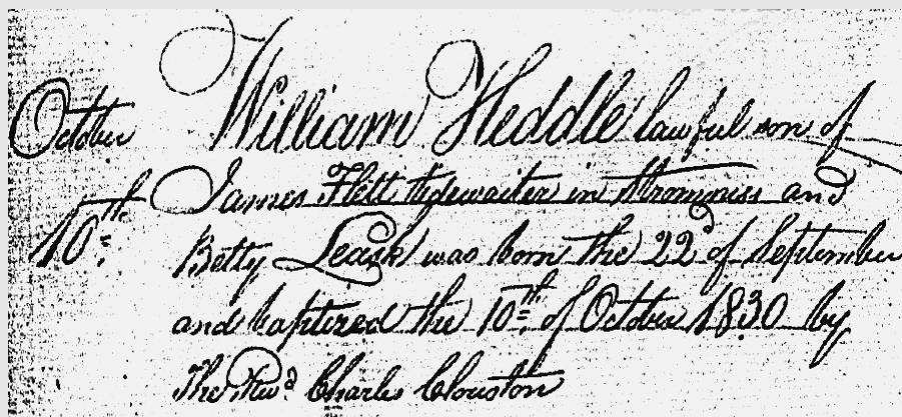 October William Heddle lawful son of
10th James Flett tidewaiter in Stromness and
Betty Leask was born the 22d of September
and baptized the 10th of October 1830 by
The Revd Charles Clouston